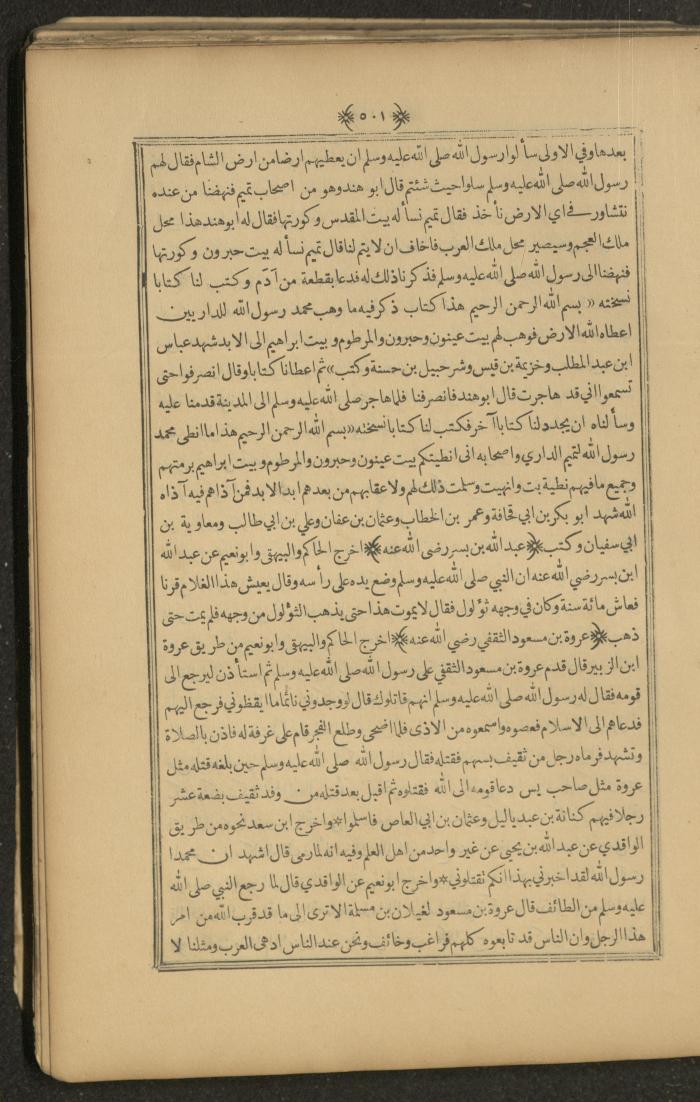 ﴿٥٠١﴾
بعدها وفي الاولى سألوا رسول الله صلى الله عليه وسلم ان يعطيهم ارضا من ارض الشام فقال لهم
رسول الله صلى الله عليه وسلم سلوا حيث شئتم قال ابو هند وهو من اصحاب تميم فنهضنا من عنده
نتشاور في اي الارض نأخذ فقال تميم نسأله بيت المقدس وكورتها فقال له ابو هند هذا محل
ملك العجم وسيصير محل ملك العرب فاخاف ان لا يتم لنا قال تميم نسأله بيت حبرون وكورتها
فنهضنا الى رسول الله صلى الله عليه وسلم فذكرنا ذلك له فدعا بقطعة من آدم وكتب لنا كتابا
نسخته «بسم الله الرحمن الرحيم هذا كتاب ذكر فيه ما وهب محمد رسول الله للداريين
اعطاه الله الارض فوهب لهم بيت عينون وحبرون والمرطوم وبيت ابراهيم الى الابد شهد عباس
ابن عبد المطلب وخزيمة بن قيس وشرحبيل بن حسنة وكتب» ثم اعطانا كتابا وقال انصرفوا حتى
تسمعوا اني قد هاجرت قال ابو هند فانصرفنا فلما هاجر صلى الله عليه وسلم الى المدينة قدمنا عليه
وسألناه ان يجدد لنا كتابا آخر فكتب لنا كتابا نسخته «بسم الله الرحمن الرحيم هذا ما انطى محمد
رسول الله لتميم الداري واصحابه انى انطيتكم بيت عينون وحبرون والمرطوم وبيت ابراهيم برمتهم
وجميع ما فيهم نطية بت وانهيت وسلمت ذلك لهم ولاعقابهم من بعدهم ابد الابد فمن آذاهم فيه آذاه
الله شهد ابو بكر بن ابي قحافة وعمر بن الخطاب وعثمان بن عفان وعلي بن ابي طالب ومعاوية بن
ابي سفيان وكتب ﴿عبد الله بن بسر رضى الله عنه﴾ اخرج الحاكم والبيهقى وابو نعيم عن عبد الله
ابن بسر رضي الله عنه ان النبي صلى الله عليه وسلم وضع يده على رأسه وقال يعيش هذا الغلام قرنا
فعاش مائة سنة وكان في وجهه ثؤلول فقال لا يموت هذا حتى يذهب الثؤلول من وجهه فلم يمت حتى
ذهب ﴿عروة بن مسعود الثقفي رضي الله عنه﴾ اخرج الحاكم والبيهقى وابو نعيم من طريق عروة
ابن الزبير قال قدم عروة بن مسعود الثقفي على رسول الله صلى الله عليه وسلم ثم استأذن ليرجع الى
قومه فقال له رسول الله صلى الله عليه وسلم انهم قاتلوك قال لو وجدوني نائما ما ايقظوني فرجع اليهم
فدعاهم الى الاسلام فعصوه واسمعوه من الاذى فلما اضحى وطلع الفجر قام على غرفة له فاذن بالصلاة
وتشهد فرماه رجل من ثقيف بسهم فقتله فقال رسول الله صلى الله عليه وسلم حين بلغه قتله مثل
عروة مثل صاحب يس دعا قومه الى الله فقتلوه ثم اقبل بعد قتله من وفد ثقيف بضعة عشر
رجلا فيهم كنانة بن عبد ياليل وعثمان بن ابي العاص فاسلموا * واخرج ابن سعد نحوه من طريق
الواقدي عن عبد الله بن يحيى عن غير واحد من اهل العلم وفيه انه لما رمى قال اشهد ان محمدا
رسول الله لقد اخبرني بهذا انكم تقتلوني * واخرج ابو نعيم عن الواقدي قال لما رجع النبي صلى الله
عليه وسلم من الطائف قال عروة بن مسعود لغيلان بن مسلمة الا ترى الى ما قد قرب الله من امر
هذا الرجل وان الناس قد تابعوه كلهم فراغب وخائف ونحن عند الناس ادهى العرب ومثلنا لا